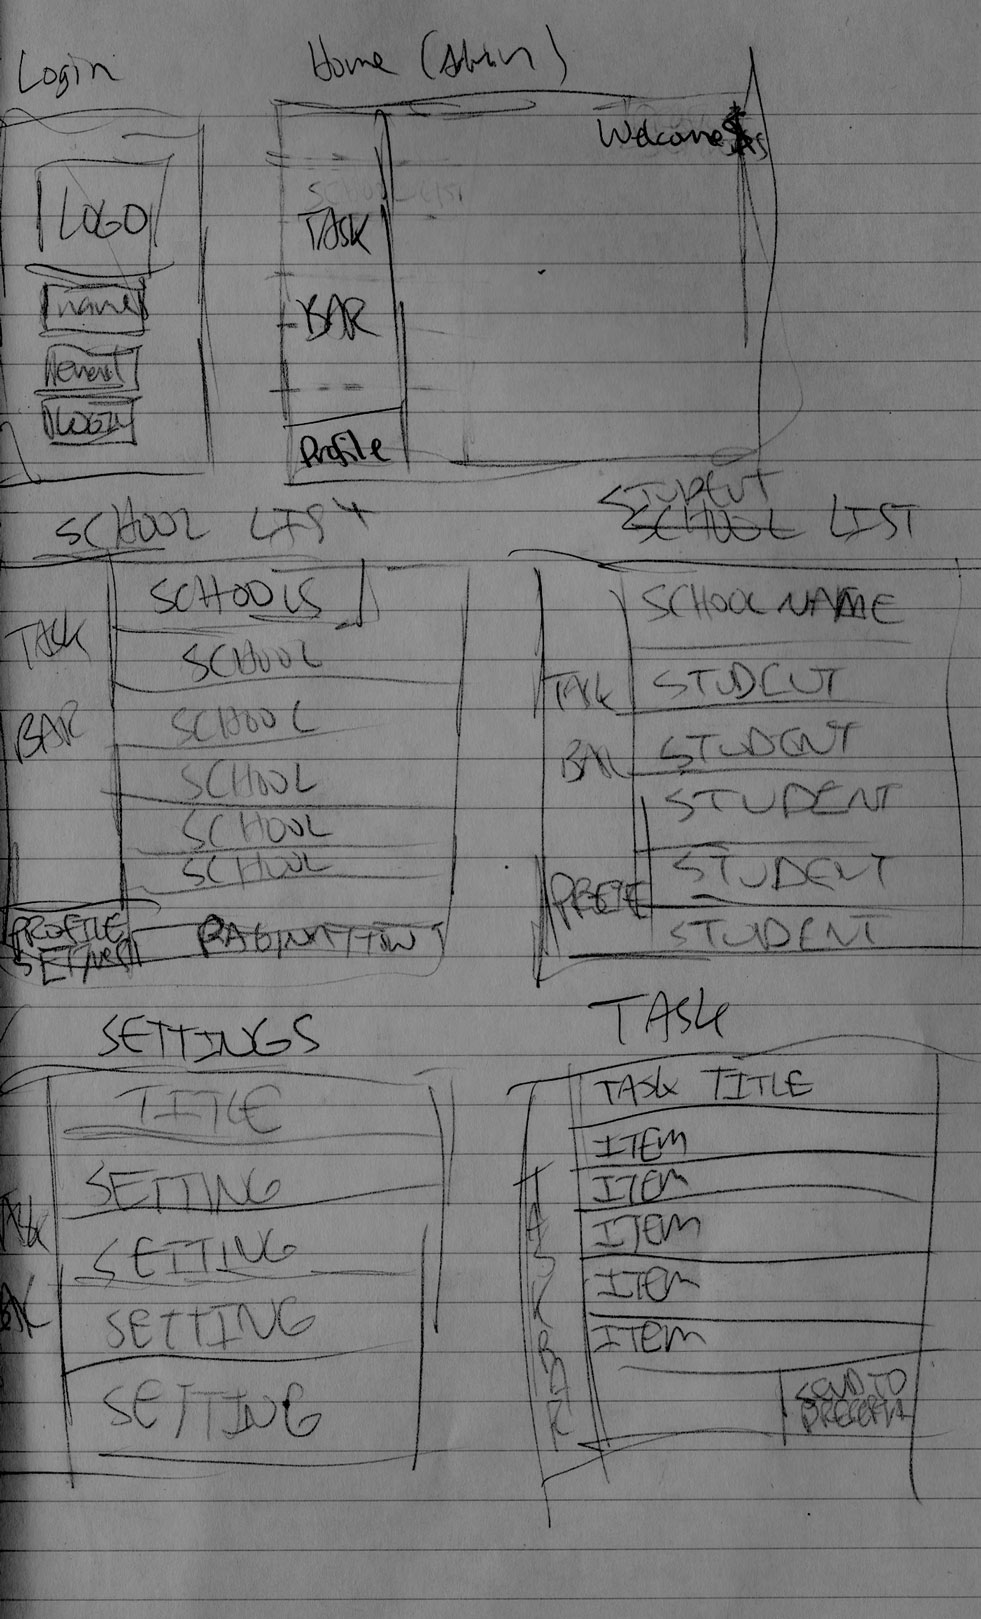 Login
Home (Admin)
LOGO
name
LOGIN
Welcome
SCHOOL LIST
TASK
BAR
Profile
SCHOOL LIST
SCHOOLS
SCHOOL
SCHOOL
SCHOOL
SCHOOL
SCHOOL
TASK
BAR
PROFILE
PAGINATION
STUDENT
SCHOOL LIST
SCHOOL NAME
STUDENT
STUDENT
STUDENT
STUDENT
STUDENT
TASK
BAR
SETTINGS
TITLE
SETTING
SETTING
SETTING
SETTING
TASK
BAR
TASK
TASK TITLE
ITEM
ITEM
ITEM
ITEM
ITEM
TASKBAR
SEND TO